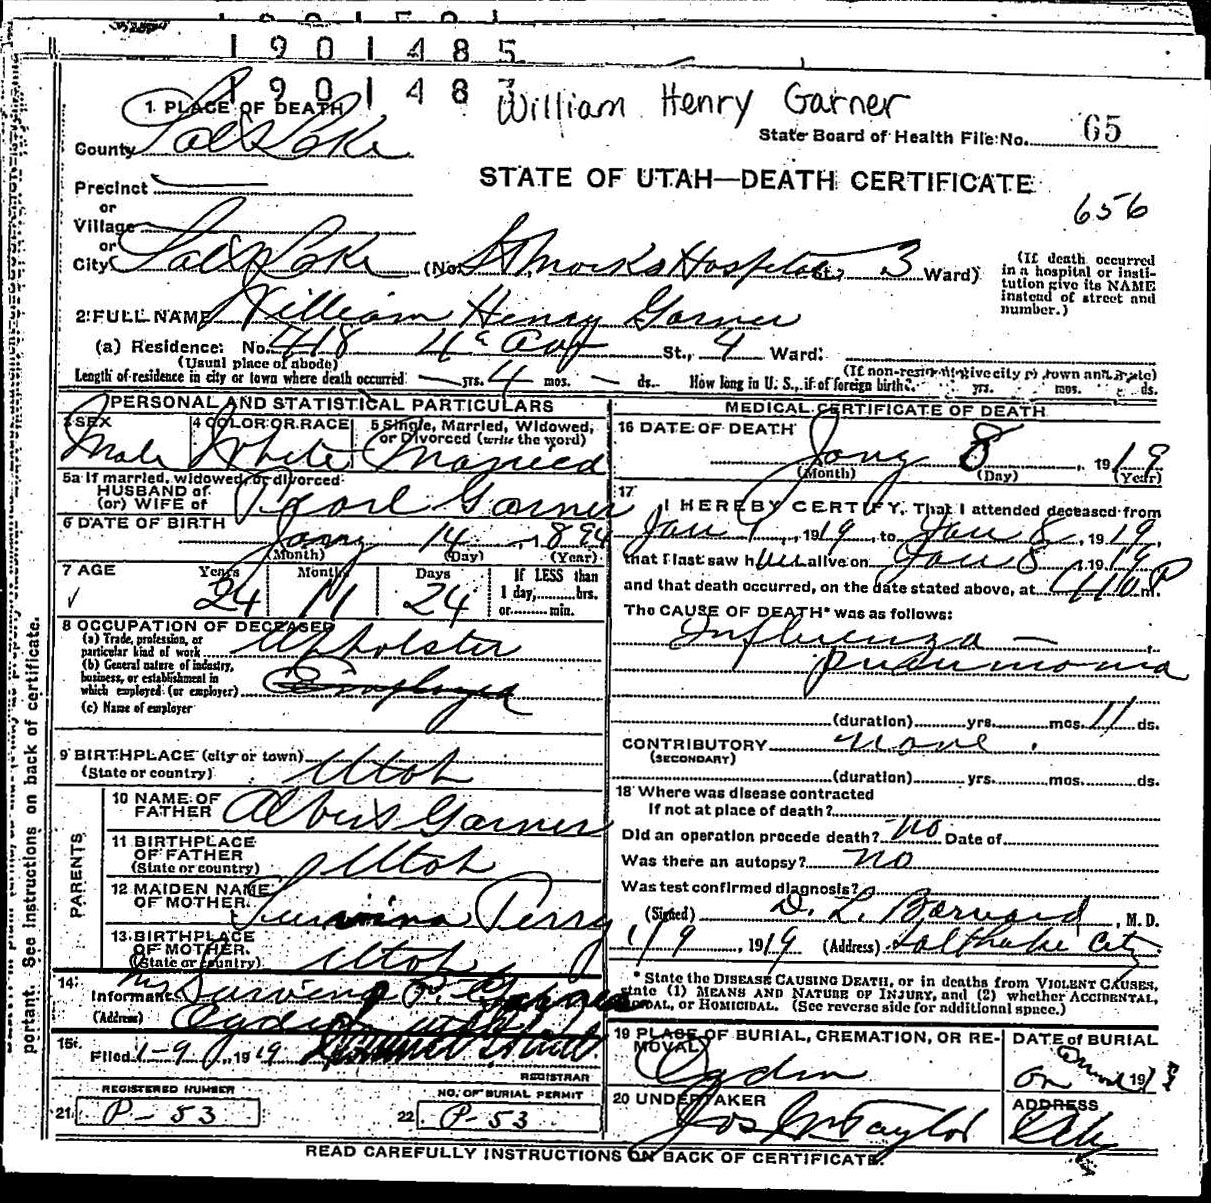 1901485
190148
William Henry Garner
1. PLACE OF DEATH
State Board of Health File No. 65
County Salt Lake
STATE OF UTAH—DEATH CERTIFICATE
Precinct
656
or
Village
or
City Salt Lake (No. St Marks Hospital St., 3 Ward)
(If death occurred in a hospital or institution give its NAME instead of street and number.)
2 FULL NAME William Henry Garner
(a) Residence: No. 418 4th Ave St., 4 Ward:
(Usual place of abode) (If non-resident give city or town and state)
Length of residence in city or town where death occurred — yrs. 4 mos. — ds. How long in U. S., if of foreign birth? yrs. mos. ds.
PERSONAL AND STATISTICAL PARTICULARS
3 SEX 4 COLOR OR RACE 5 Single, Married, Widowed, or Divorced (write the word)
Male White Married
5a If married, widowed, or divorced
HUSBAND of
(or) WIFE of Pearl Garner
6 DATE OF BIRTH
Jany 14, 1894
(Month) (Day) (Year)
7 AGE Years Months Days If LESS than
24 11 24 1 day, hrs.
or min.
8 OCCUPATION OF DECEASED
(a) Trade, profession, or
particular kind of work Upholster
(b) General nature of industry,
business, or establishment in
which employed (or employer) Employed
(c) Name of employer
9 BIRTHPLACE (city or town)
(State or country) Utah
PARENTS
10 NAME OF
FATHER Albert Garner
11 BIRTHPLACE
OF FATHER
(State or country) Utah
12 MAIDEN NAME
OF MOTHER Perry
13 BIRTHPLACE
OF MOTHER
(State or country) Utah
14
Informant
(Address) Ogden Utah
15
Filed 1-9, 1919
REGISTRAR
REGISTERED NUMBER NO. OF BURIAL PERMIT
21 P-53 22 P-53
MEDICAL CERTIFICATE OF DEATH
16 DATE OF DEATH
Jany 8, 1919
(Month) (Day) (Year)
17
I HEREBY CERTIFY, That I attended deceased from
Jan 1, 1919, to Jan 8, 1919,
that I last saw him alive on Jan 8, 1919
and that death occurred, on the date stated above, at 4 10 P m.
The CAUSE OF DEATH* was as follows:
Influenza —
pneumonia
(duration) yrs. mos. 11 ds.
CONTRIBUTORY none.
(SECONDARY)
(duration) yrs. mos. ds.
18 Where was disease contracted
If not at place of death?
Did an operation precede death? no Date of
Was there an autopsy? no
Was test confirmed diagnosis?
(Signed) D. L. Barnard, M. D.
1/9, 1919 (Address) Salt Lake City
* State the DISEASE CAUSING DEATH, or in deaths from VIOLENT CAUSES,
state (1) MEANS AND NATURE OF INJURY, and (2) whether ACCIDENTAL,
SUICIDAL, or HOMICIDAL. (See reverse side for additional space.)
19 PLACE OF BURIAL, CREMATION, OR REMOVAL DATE of BURIAL
Ogden on 191
20 UNDERTAKER ADDRESS
Jos Wm Taylor City
READ CAREFULLY INSTRUCTIONS ON BACK OF CERTIFICATE.
portant. See instructions on back of certificate.